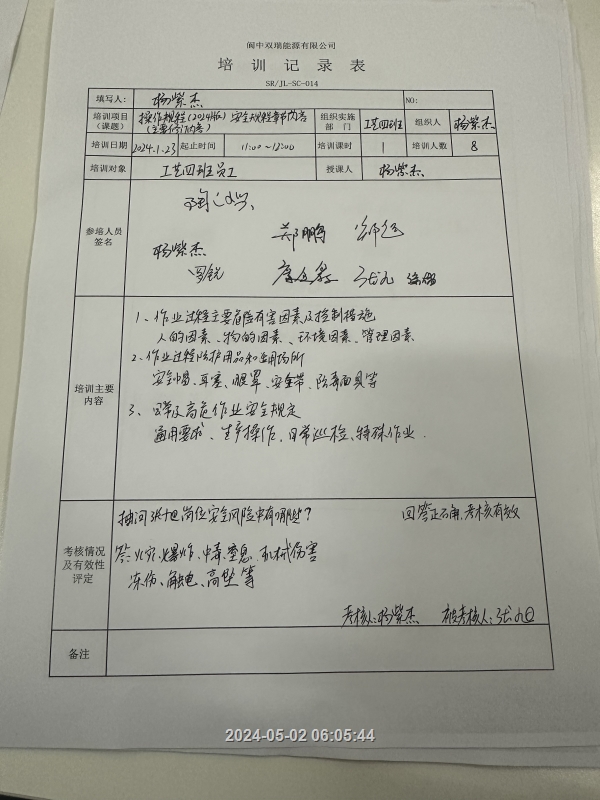 阆中双瑞能源有限公司
培 训 记 录 表
SR/JL-SC-014
填写人： 杨紫杰 NO:
培训项目（课题） 操作规程(2024版) 安全规程章节内容 (主要修订内容) 组织实施部 门 工艺四班 组织人 杨紫杰
培训日期 2024.1.23 起止时间 11:00～12:00 培训课时 1 培训人数 8
培训对象 工艺四班员工 授课人 杨紫杰
参培人员签名
郑鹏
杨紫杰
罗锐
培训主要内容
1、作业过程主要危险有害因素及控制措施
人的因素、物的因素、环境因素、管理因素
2、作业过程防护用品和应用场所
安全帽、耳塞、眼罩、安全带、防毒面具等
3、日常及高危作业安全规定
通用要求、生产操作、日常巡检、特殊作业.
考核情况及有效性评定
抽问张旭岗位安全风险中有哪些? 回答正确,考核有效
答:火灾、爆炸、中毒、窒息、机械伤害
冻伤、触电、高坠等
考核人:杨紫杰 被考核人:张旭
备注
2024-05-02 06:05:44